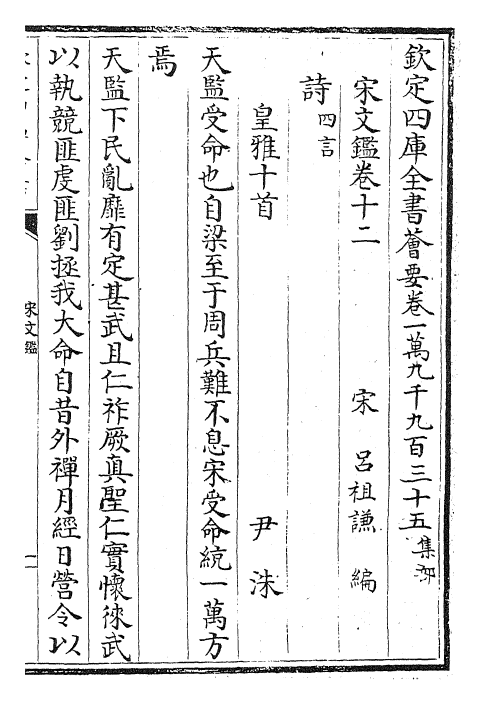 欽定四庫全書薈要卷一萬九千九百三十五集部
宋文鑑卷十二 宋 呂祖謙 編
詩四言
皇雅十首 尹洙
天監受命也自梁至于周兵難不息宋受命統一萬方
焉
天監下民亂靡有定甚武且仁祚厥真聖仁實懷徠武
以執競匪虔匪劉拯我大命自昔外禪月經日營令以
宋文鑑
一